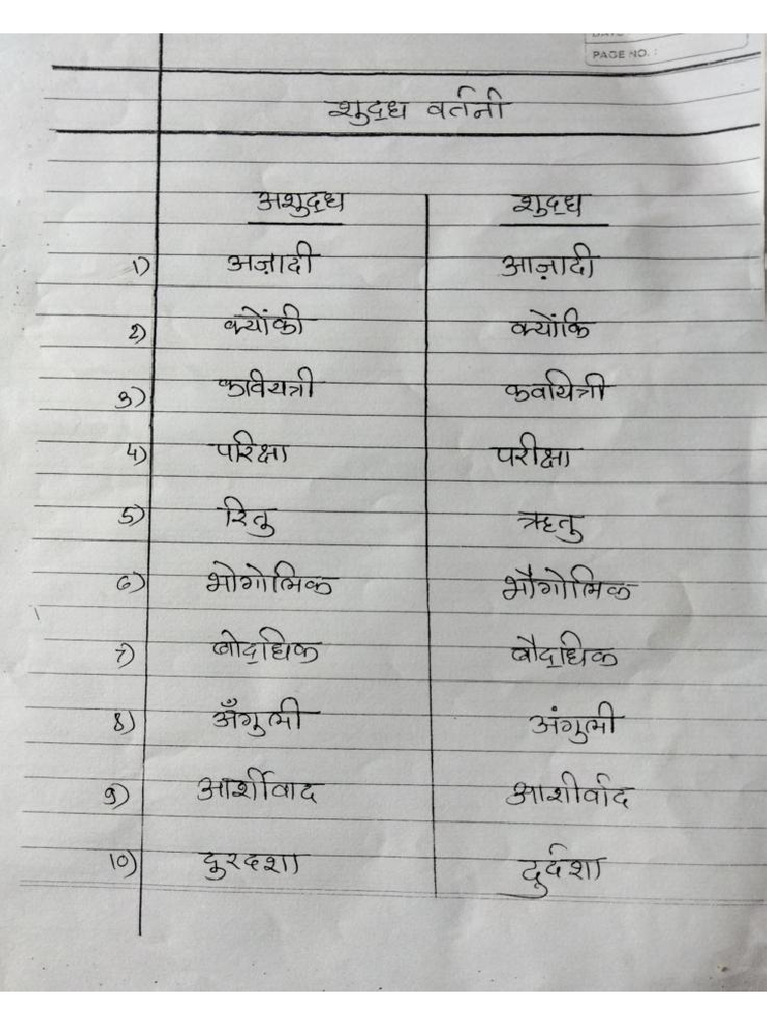 PAGE NO. :
शुद्ध वर्तनी
अशुद्ध शुद्ध
1) अज़ादी आज़ादी
2) क्योंकी क्योंकि
3) कवियत्री कवयित्री
4) परिक्षा परीक्षा
5) रितु ऋतु
6) भोगोलिक भौगोलिक
7) बोद्धिक बौद्धिक
8) अँगुली अंगुली
9) आर्शीवाद आशीर्वाद
10) दुरदशा दुर्दशा